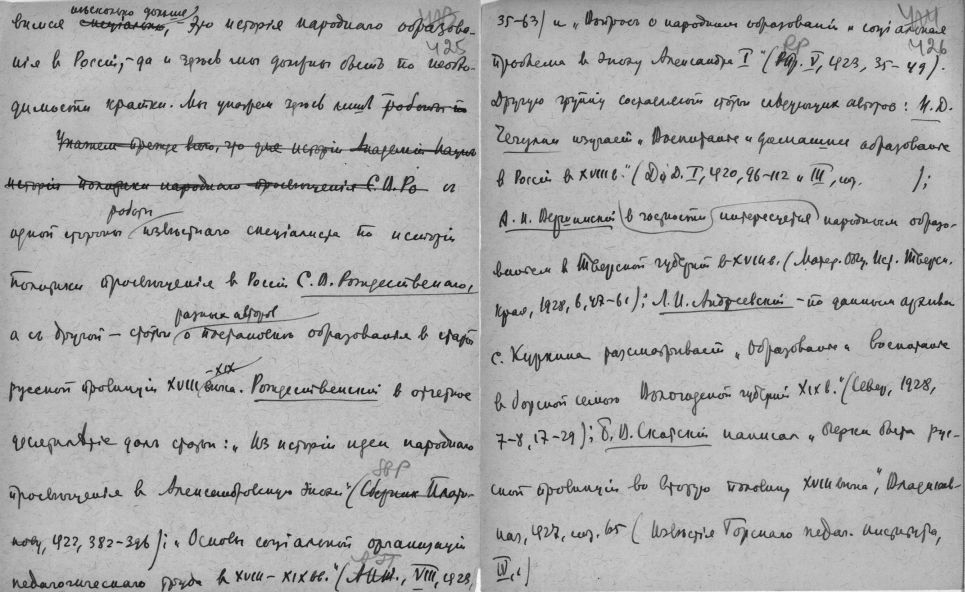 несколько дольше
вшиеся специально, Это исторія народнаго образова-
425
нія в Россіи, – да и здесь мы должны быть по необхо-
димости кратки. Мы укажем здесь лишь работы по
Укажем прежде всего, что для исторіи Академіи Наук
исторія политики народнаго просвещенія С. В. Ро с
работы
одной стороны известнаго спеціалиста по исторіи
политики просвещенія в Россіи С. В. Рождественскаго,
разных авторов
а съ другой – статьи о постановке образованія в старой
– XIX
русской провинціи XVIII века. Рождественскій в отчетное
десятилетіе дал статьи: „Из исторіи идеи народнаго
просвещенія в Александровскую эпоху" (Сборник Плато-
нову, 1922, 382–396); „Основы соціальной организаціи
педагогическаго труда в XVIII – XIX вв." ( VIII, 1923,
424
35–63) и „Вопрос о народном образовании и соціальная
426
проблема в эпоху Александра I" ( V, 1923, 35–49).
Другую группу составляют статьи следующих авторов: Н. Д.
Чечулин изучает „Воспитание и домашнее образование
в Россіи в XVIII в." (Д и Д. I, 1920, 96–112 и III, стр. );
А. Н. Вершинскій в частности интересуется народным образо-
ванием в Тверской губерніи в XVIII в. (Матер. Общ. Изд. Тверск.
края, 1928, 6, 47–61); Л. И. Андреевскій – по данным архива
с. Куркина разсматривает „Образование и воспитание
в барской семье Вологодской губерніи XIX в." (Север, 1928,
7–8, 17–29); Б. В. Скитскій написал „Очерки быта рус-
ской провинціи во вторую половину XVIII века", Владикав-
каз, 1927, стр. 65 (Известія Горскаго педаг. института,
IV, 1)